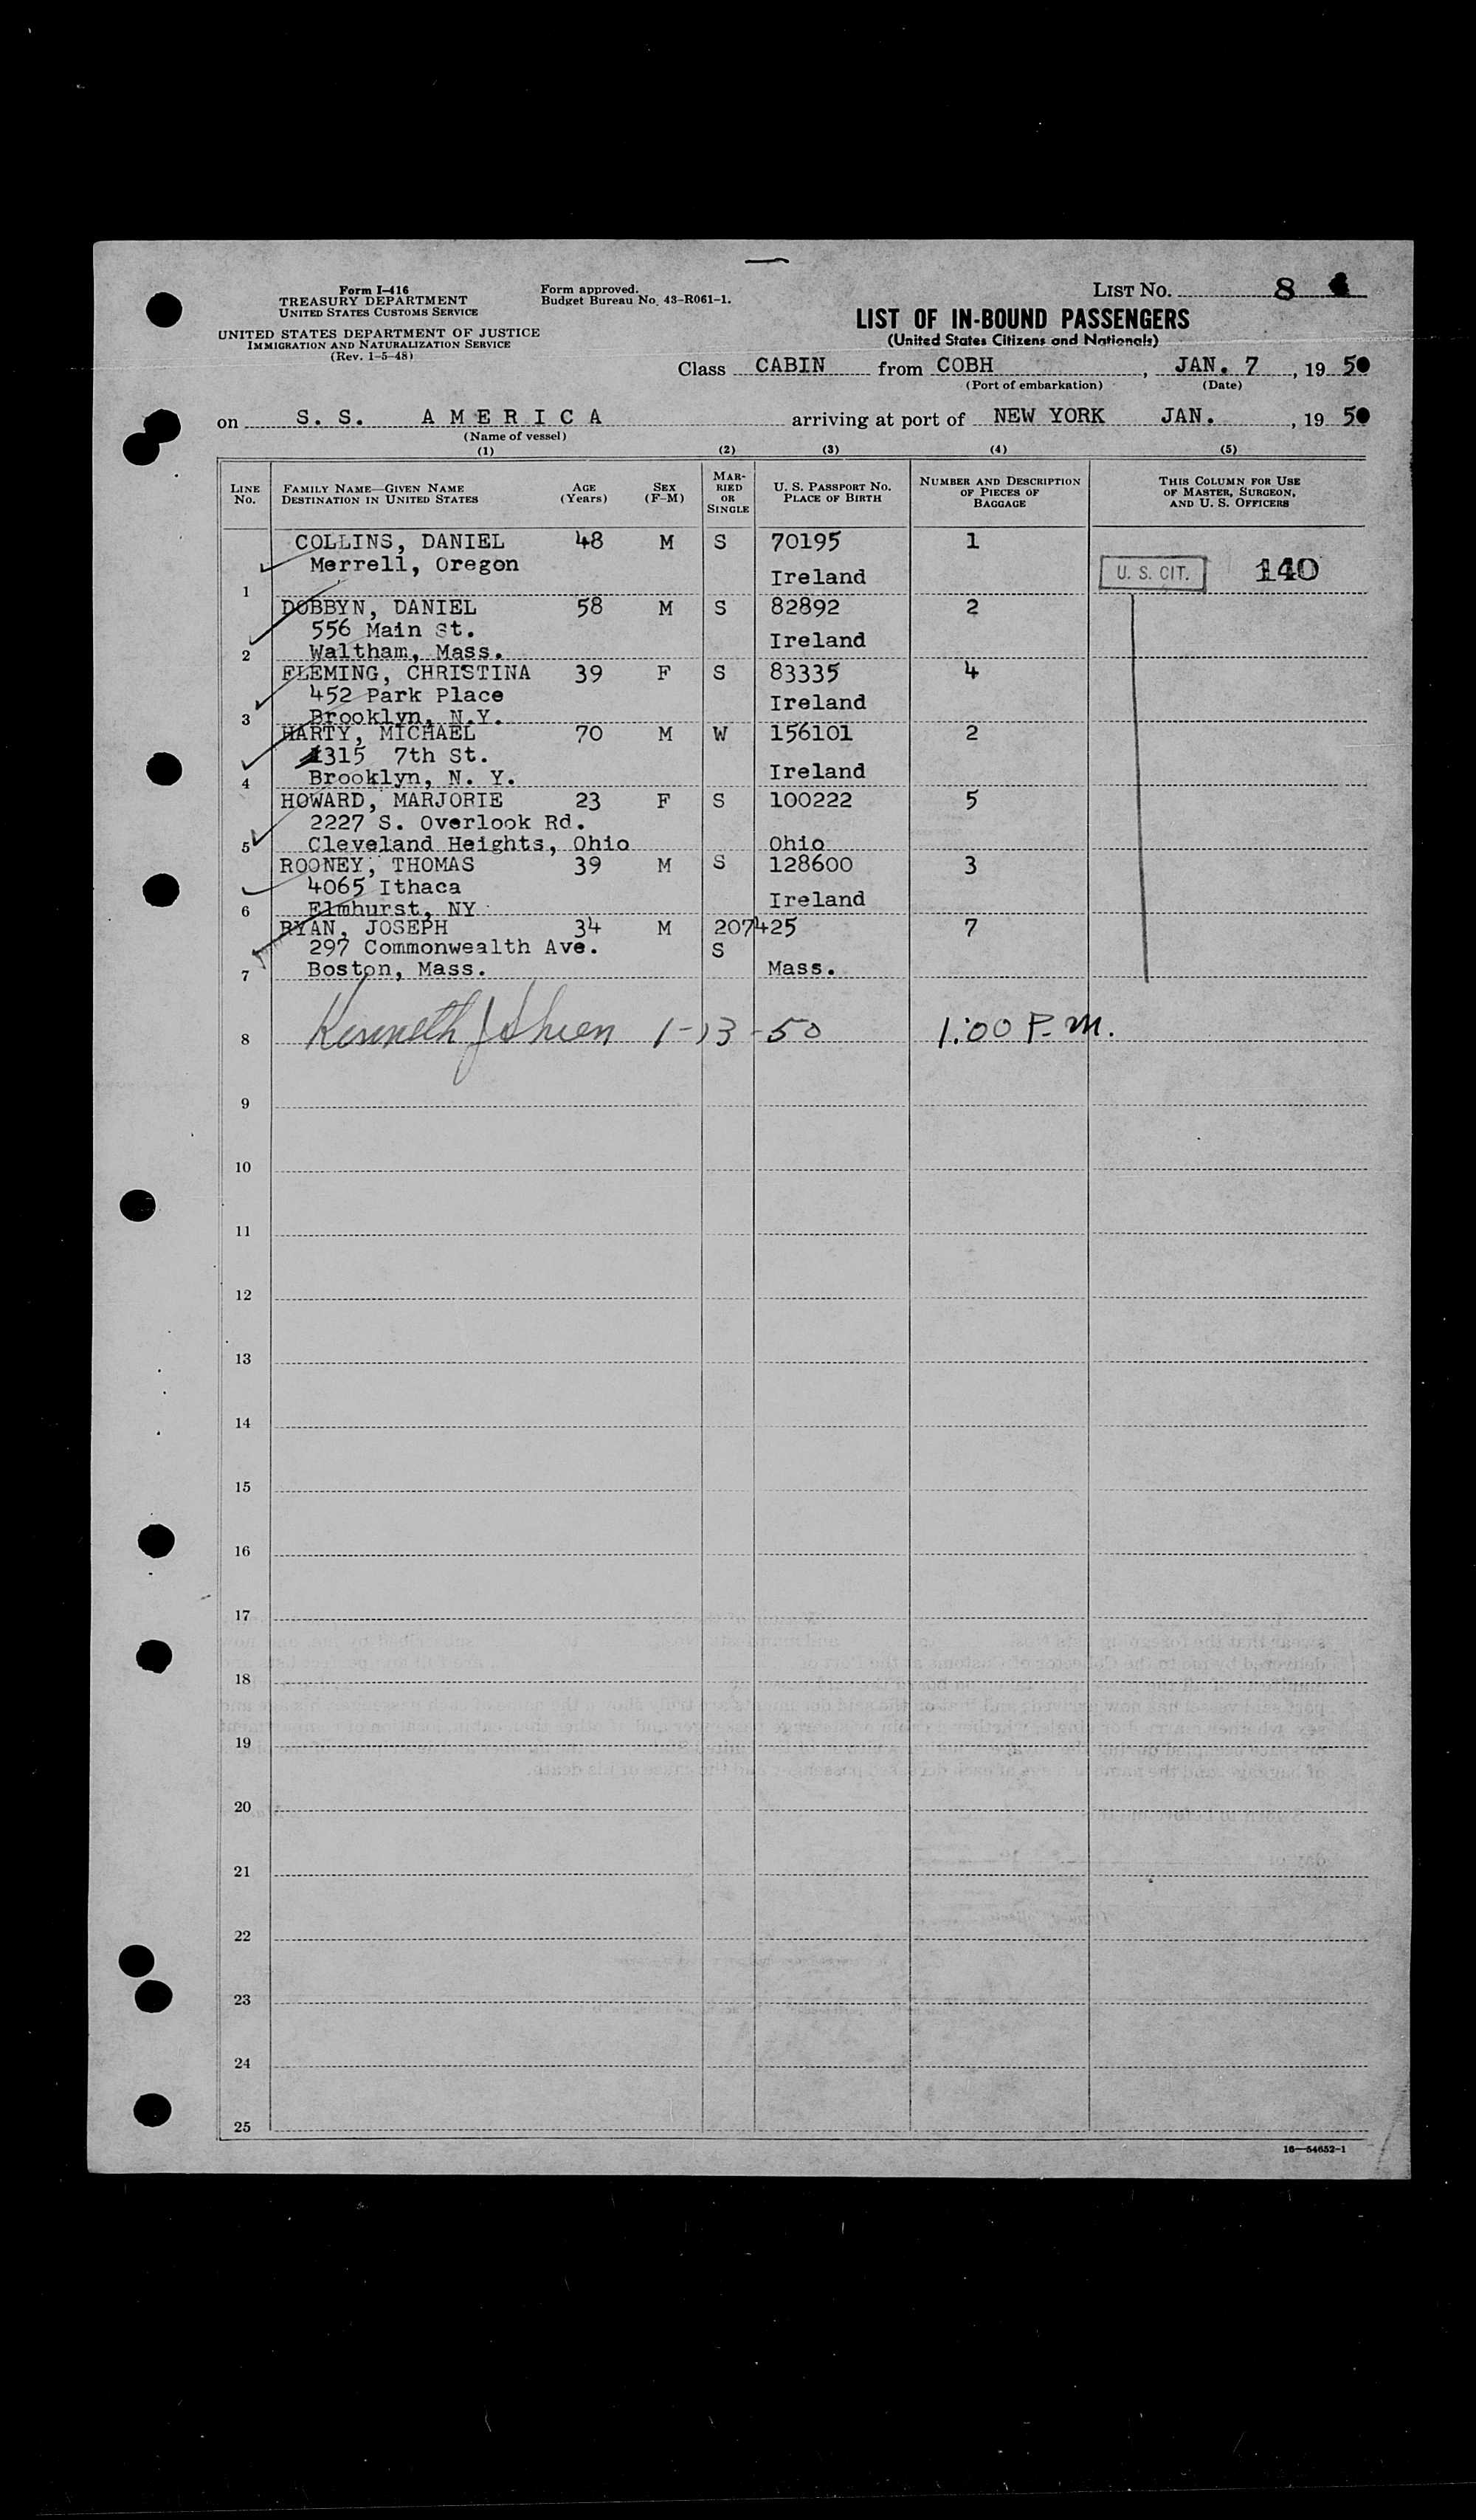 Form I-416
TREASURY DEPARTMENT
UNITED STATES CUSTOMS SERVICE
UNITED STATES DEPARTMENT OF JUSTICE
IMMIGRATION AND NATURALIZATION SERVICE
(Rev. 1-5-48)
Form approved.
Budget Bureau No. 43-R061-1.
LIST NO. 8
LIST OF IN-BOUND PASSENGERS
(United States Citizens and Nationals)
Class CABIN from COBH, JAN. 7, 19 50
(Port of embarkation) (Date)
on S. S. AMERICA arriving at port of NEW YORK JAN., 19 50
(Name of vessel)
(1) (2) (3) (4) (5)
LINE NO. FAMILY NAME—GIVEN NAME DESTINATION IN UNITED STATES AGE (Years) SEX (F-M) MARRIED OR SINGLE U. S. PASSPORT NO. PLACE OF BIRTH NUMBER AND DESCRIPTION OF PIECES OF BAGGAGE THIS COLUMN FOR USE OF MASTER, SURGEON, AND U. S. OFFICERS
COLLINS, DANIEL 48 M S 70195 1
Merrell, Oregon
Ireland U. S. CIT. 140
1
DOBBYN, DANIEL 58 M S 82892 2
556 Main St.
Ireland
2 Waltham, Mass.
FLEMING, CHRISTINA 39 F S 83335 4
452 Park Place
Ireland
3 Brooklyn, N.Y.
HARTY, MICHAEL 70 M W 156101 2
1315 7th St.
Ireland
4 Brooklyn, N. Y.
HOWARD, MARJORIE 23 F S 100222 5
2227 S. Overlook Rd.
5 Cleveland Heights, Ohio Ohio
ROONEY, THOMAS 39 M S 128600 3
4065 Ithaca
Ireland
6 Elmhurst, NY
RYAN, JOSEPH 34 M 207425 7
297 Commonwealth Ave. S
7 Boston, Mass. Mass.
8 Kenneth J 1-13-50 1:00 P.M.
9
10
11
12
13
14
15
16
17
18
19
20
21
22
23
24
25
16—54652-1